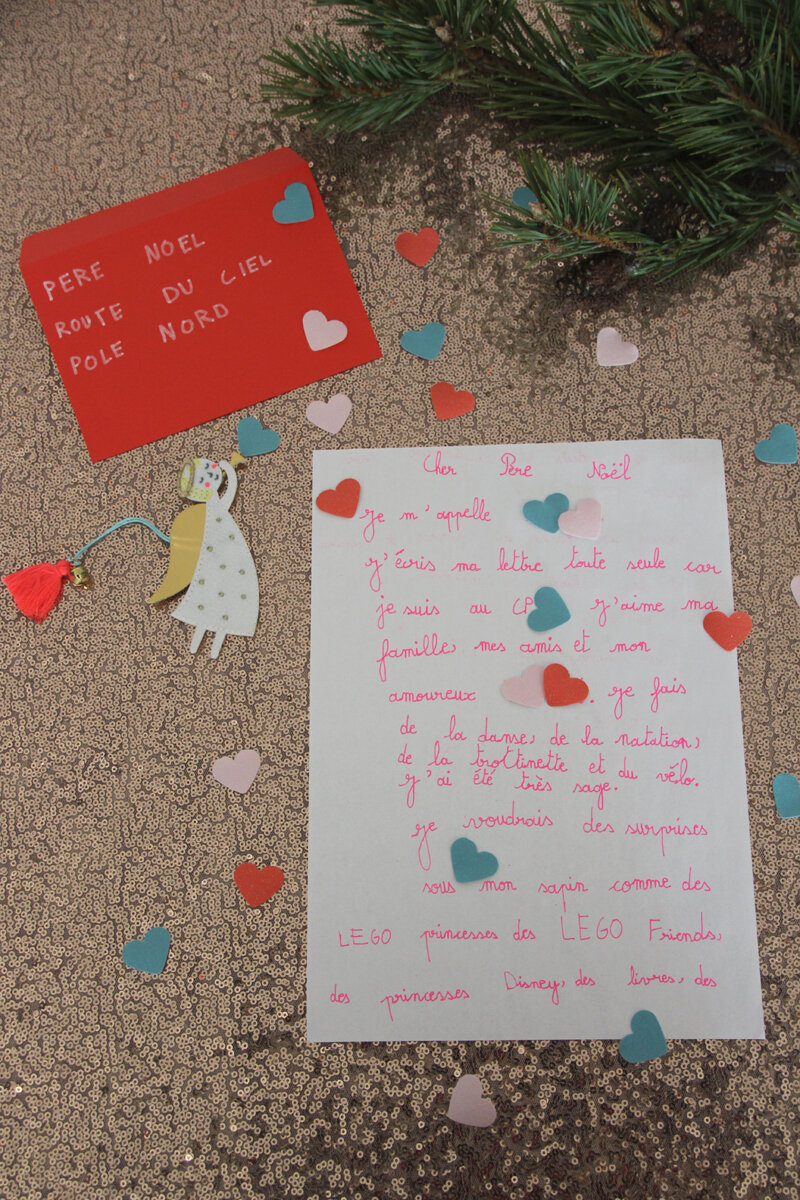 PERE NOEL
ROUTE DU CIEL
POLE NORD
Cher Père Noël
Je m'appelle
J'écris ma lettre toute seule car
je suis au CP J'aime ma
famille, mes amis et mon
amoureux . Je fais
de la danse, de la natation,
de la trottinette et du vélo.
J'ai été très sage.
Je voudrais des surprises
sous mon sapin comme des
LEGO princesses des LEGO Friends,
des princesses Disney, des livres, des